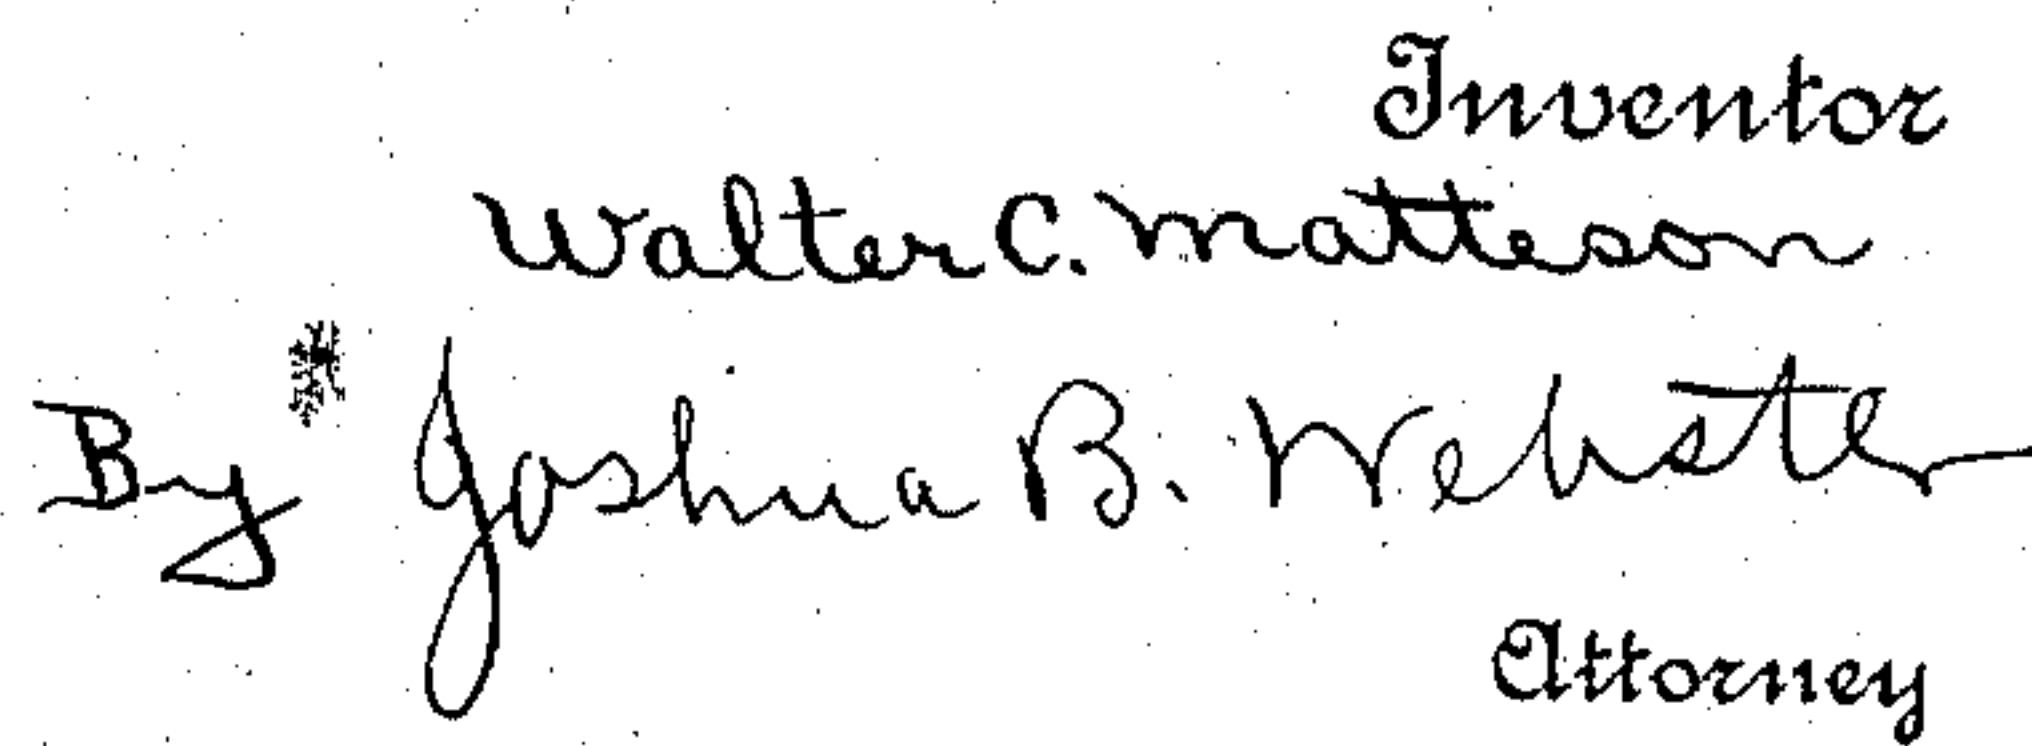 Inventor
Walter C. Matteson
By Joshua B. Webster
Attorney